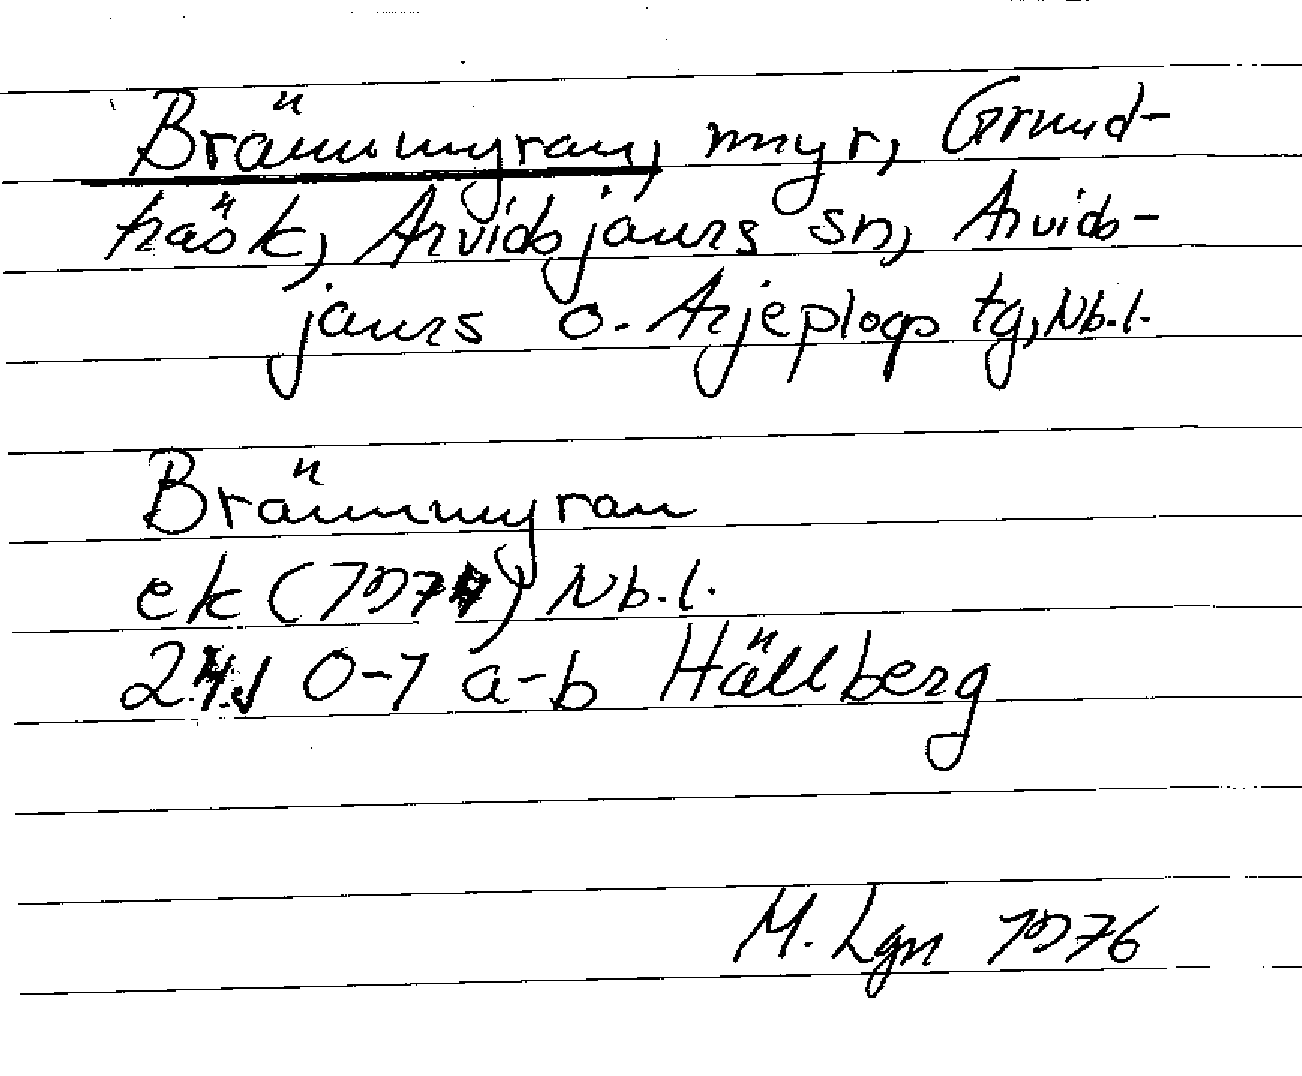 Brännmyran, myr, Grund-
träsk, Arvidsjaurs sn, Arvids-
jaurs o. Arjeplogs tg, Nb.l.
Brännmyran
ek (1974) Nb.l.
24J 0-1 a-b Hällberg
M. Lgn 1976